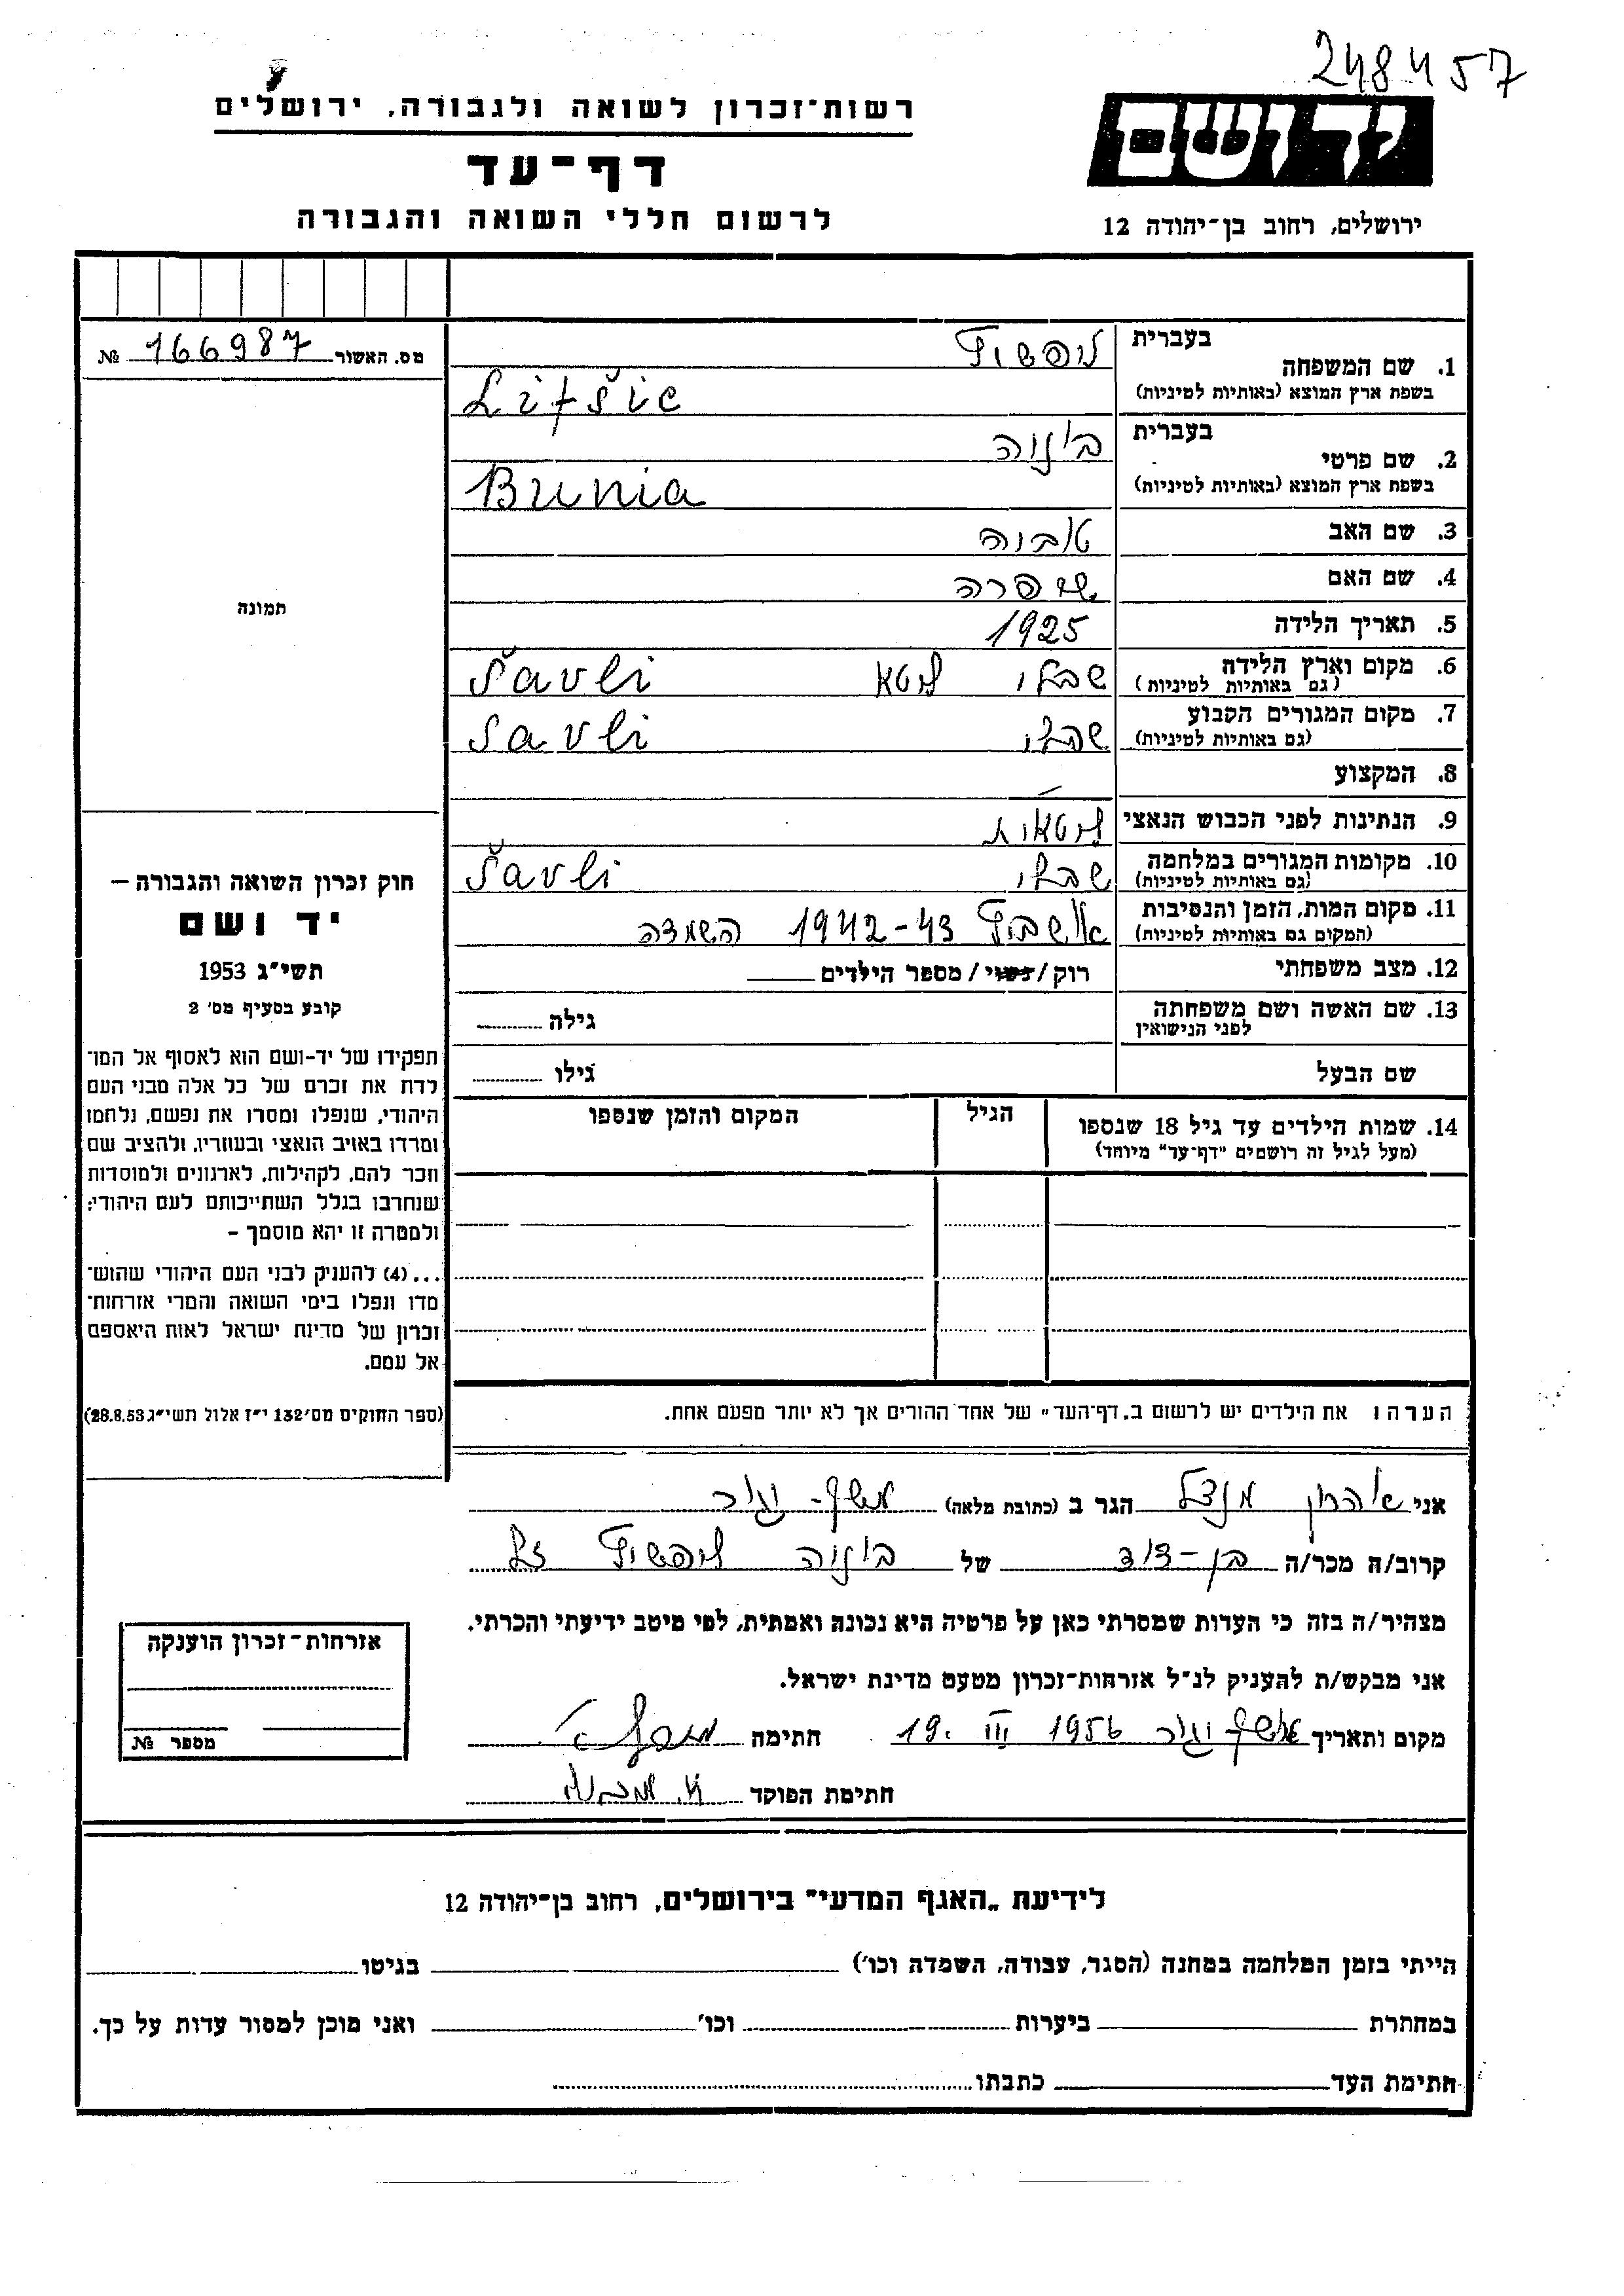 248457
רשות־זכרון לשואה ולגבורה, ירושלים
דף־עד
לרשום חללי השואה והגבורה
יד ושם
ירושלים, רחוב בן־יהודה 12
מס. האשור 166987 №
תמונה
חוק זכרון השואה והגבורה —
יד ושם
תשי״ג 1953
קובע בסעיף מס׳ 2
תפקידו של יד-ושם הוא לאסוף אל המו־
לדת את זכרם של כל אלה מבני העם
היהודי, שנפלו ומסרו את נפשם, נלחמו
ומרדו באויב הנאצי ובעוזריו, ולהציב שם
וזכר להם, לקהילות, לארגונים ולמוסדות
שנחרבו בגלל השתייכותם לעם היהודי;
ולמטרה זו יהא מוסמך –
...(4) להעניק לבני העם היהודי שהוש־
מדו ונפלו בימי השואה והמרי אזרחות־
זכרון של מדינת ישראל לאות היאספם
אל עמם.
(ספר החוקים מס׳ 132 י״ז אלול תשי״ג 28.8.53)
1. שם המשפחה בעברית ליפשיץ
בשפת ארץ המוצא (באותיות לטיניות) Lifšic
2. שם פרטי בעברית בוניה
בשפת ארץ המוצא (באותיות לטיניות) Bunia
3. שם האב טוביה
4. שם האם שפרה
5. תאריך הלידה 1925
6. מקום וארץ הלידה (גם באותיות לטיניות) שבלי ליטא Šavli
7. מקום המגורים הקבוע (גם באותיות לטיניות) שבלי Šavli
8. המקצוע —
9. הנתינות לפני הכבוש הנאצי ליטאית
10. מקומות המגורים במלחמה (גם באותיות לטיניות) שבלי Šavli
11. מקום המות, הזמן והנסיבות (המקום גם באותיות לטיניות) אושביץ 1942-43 השמדה
12. מצב משפחתי רוק/נשוי/מספר הילדים
13. שם האשה ושם משפחתה לפני הנישואין גילה
שם הבעל גילו
14. שמות הילדים עד גיל 18 שנספו הגיל המקום והזמן שנספו
(מעל לגיל זה רושמים "דף־עד" מיוחד)
הערה: את הילדים יש לרשום ב„דף־העד״ של אחד ההורים אך לא יותר מפעם אחת.
אני אהרון מנדל הגר ב (כתובת מלאה)
קרוב/ה מכר/ה בן-דוד של בוניה ליפשיץ ז״ל
מצהיר/ה בזה כי העדות שמסרתי כאן על פרטיה היא נכונה ואמתית, לפי מיטב ידיעתי והכרתי.
אני מבקש/ת להעניק לנ״ל אזרחות־זכרון מטעם מדינת ישראל.
מקום ותאריך 19. III 1956 חתימה
חתימת הפוקד
אזרחות־זכרון הוענקה
מספר №
לידיעת „האגף המדעי״ בירושלים, רחוב בן־יהודה 12
הייתי בזמן המלחמה במחנה (הסגר, עבודה, השמדה וכו׳) בגיטו
במחתרת ביערות וכו׳ ואני מוכן למסור עדות על כך.
חתימת העד כתבתו